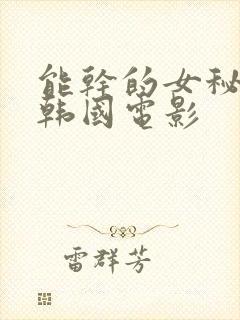 能幹的女秘
韩國電影
雷群芳